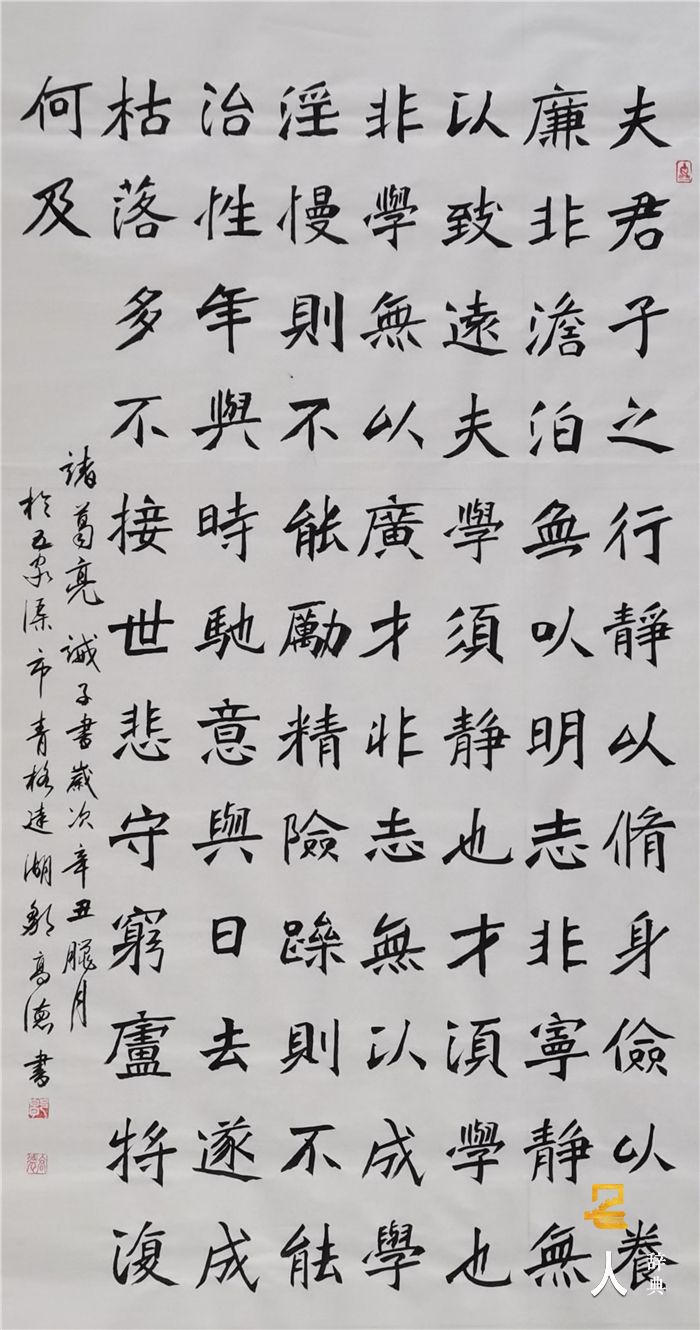 夫君子之行靜以脩身儉以養
廉非澹泊無以明志非寧靜無
以致遠夫學須静也才須學也
非學無以廣才非志無以成學
淫慢則不能勵精險躁則不能
治性年與時馳意與日去遂成
枯落多不接世悲守窮廬將復
何及
諸葛亮誡子書歲次辛丑臘月
於五家渠市青格達湖高德書
人辞典